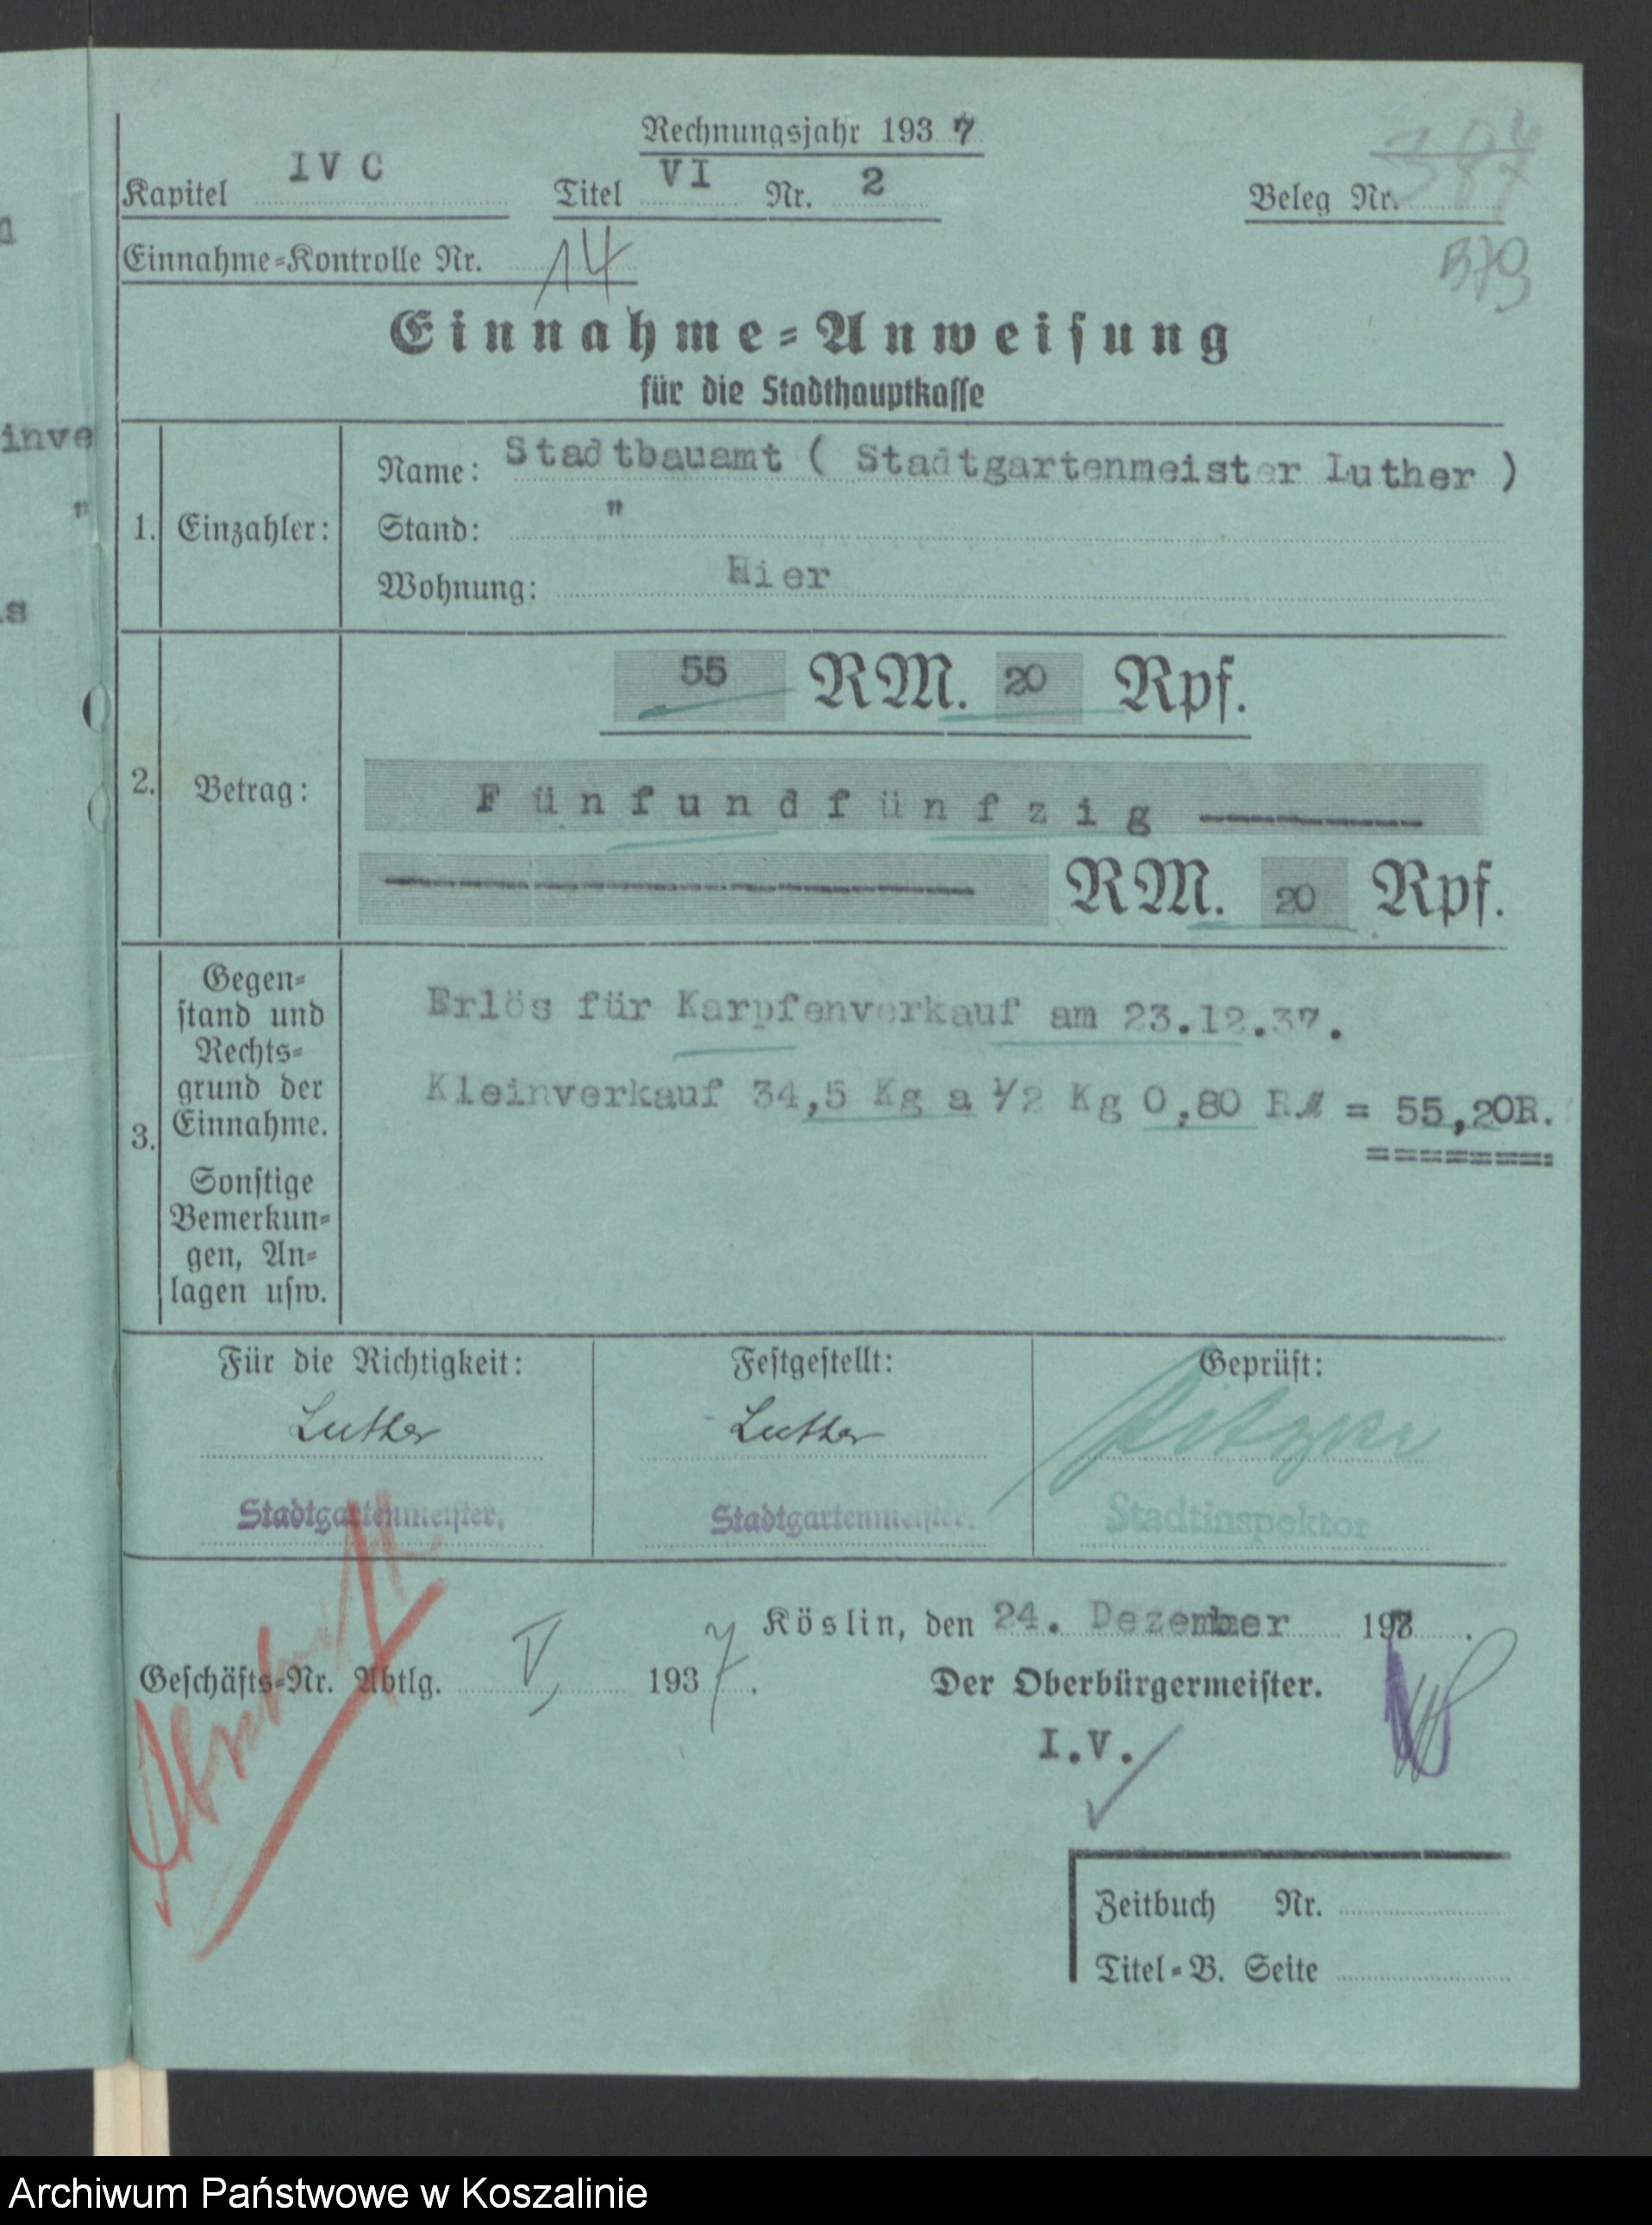 Rechnungsjahr 1937
Kapitel IV C Titel VI Nr. 2 Beleg Nr.
379
Einnahme-Kontrolle Nr. 14
Einnahme-Anweisung
für die Stadthauptkasse
1. Einzahler:
Name: Stadtbauamt ( Stadtgartenmeister Luther )
Stand: "
Wohnung: Hier
2. Betrag:
55 RM. 20 Rpf.
Fünfundfünfzig
RM. 20 Rpf.
3.
Gegen-
stand und
Rechts-
grund der
Einnahme.
Sonstige
Bemerkun-
gen, An-
lagen usw.
Erlös für Karpfenverkauf am 23.12.37.
Kleinverkauf 34,5 Kg a 1/2 Kg 0,80 RM = 55,20R.
========
Für die Richtigkeit: Festgestellt: Geprüft:
Luther Luther
Stadtgartenmeister. Stadtgartenmeister. Stadtinspektor
Köslin, den 24. Dezember 1937.
Geschäfts-Nr. Abtlg. V, 1937.
Der Oberbürgermeister.
I.V.
Zeitbuch Nr.
Titel-B. Seite
inve
"
Archiwum Państwowe w Koszalinie